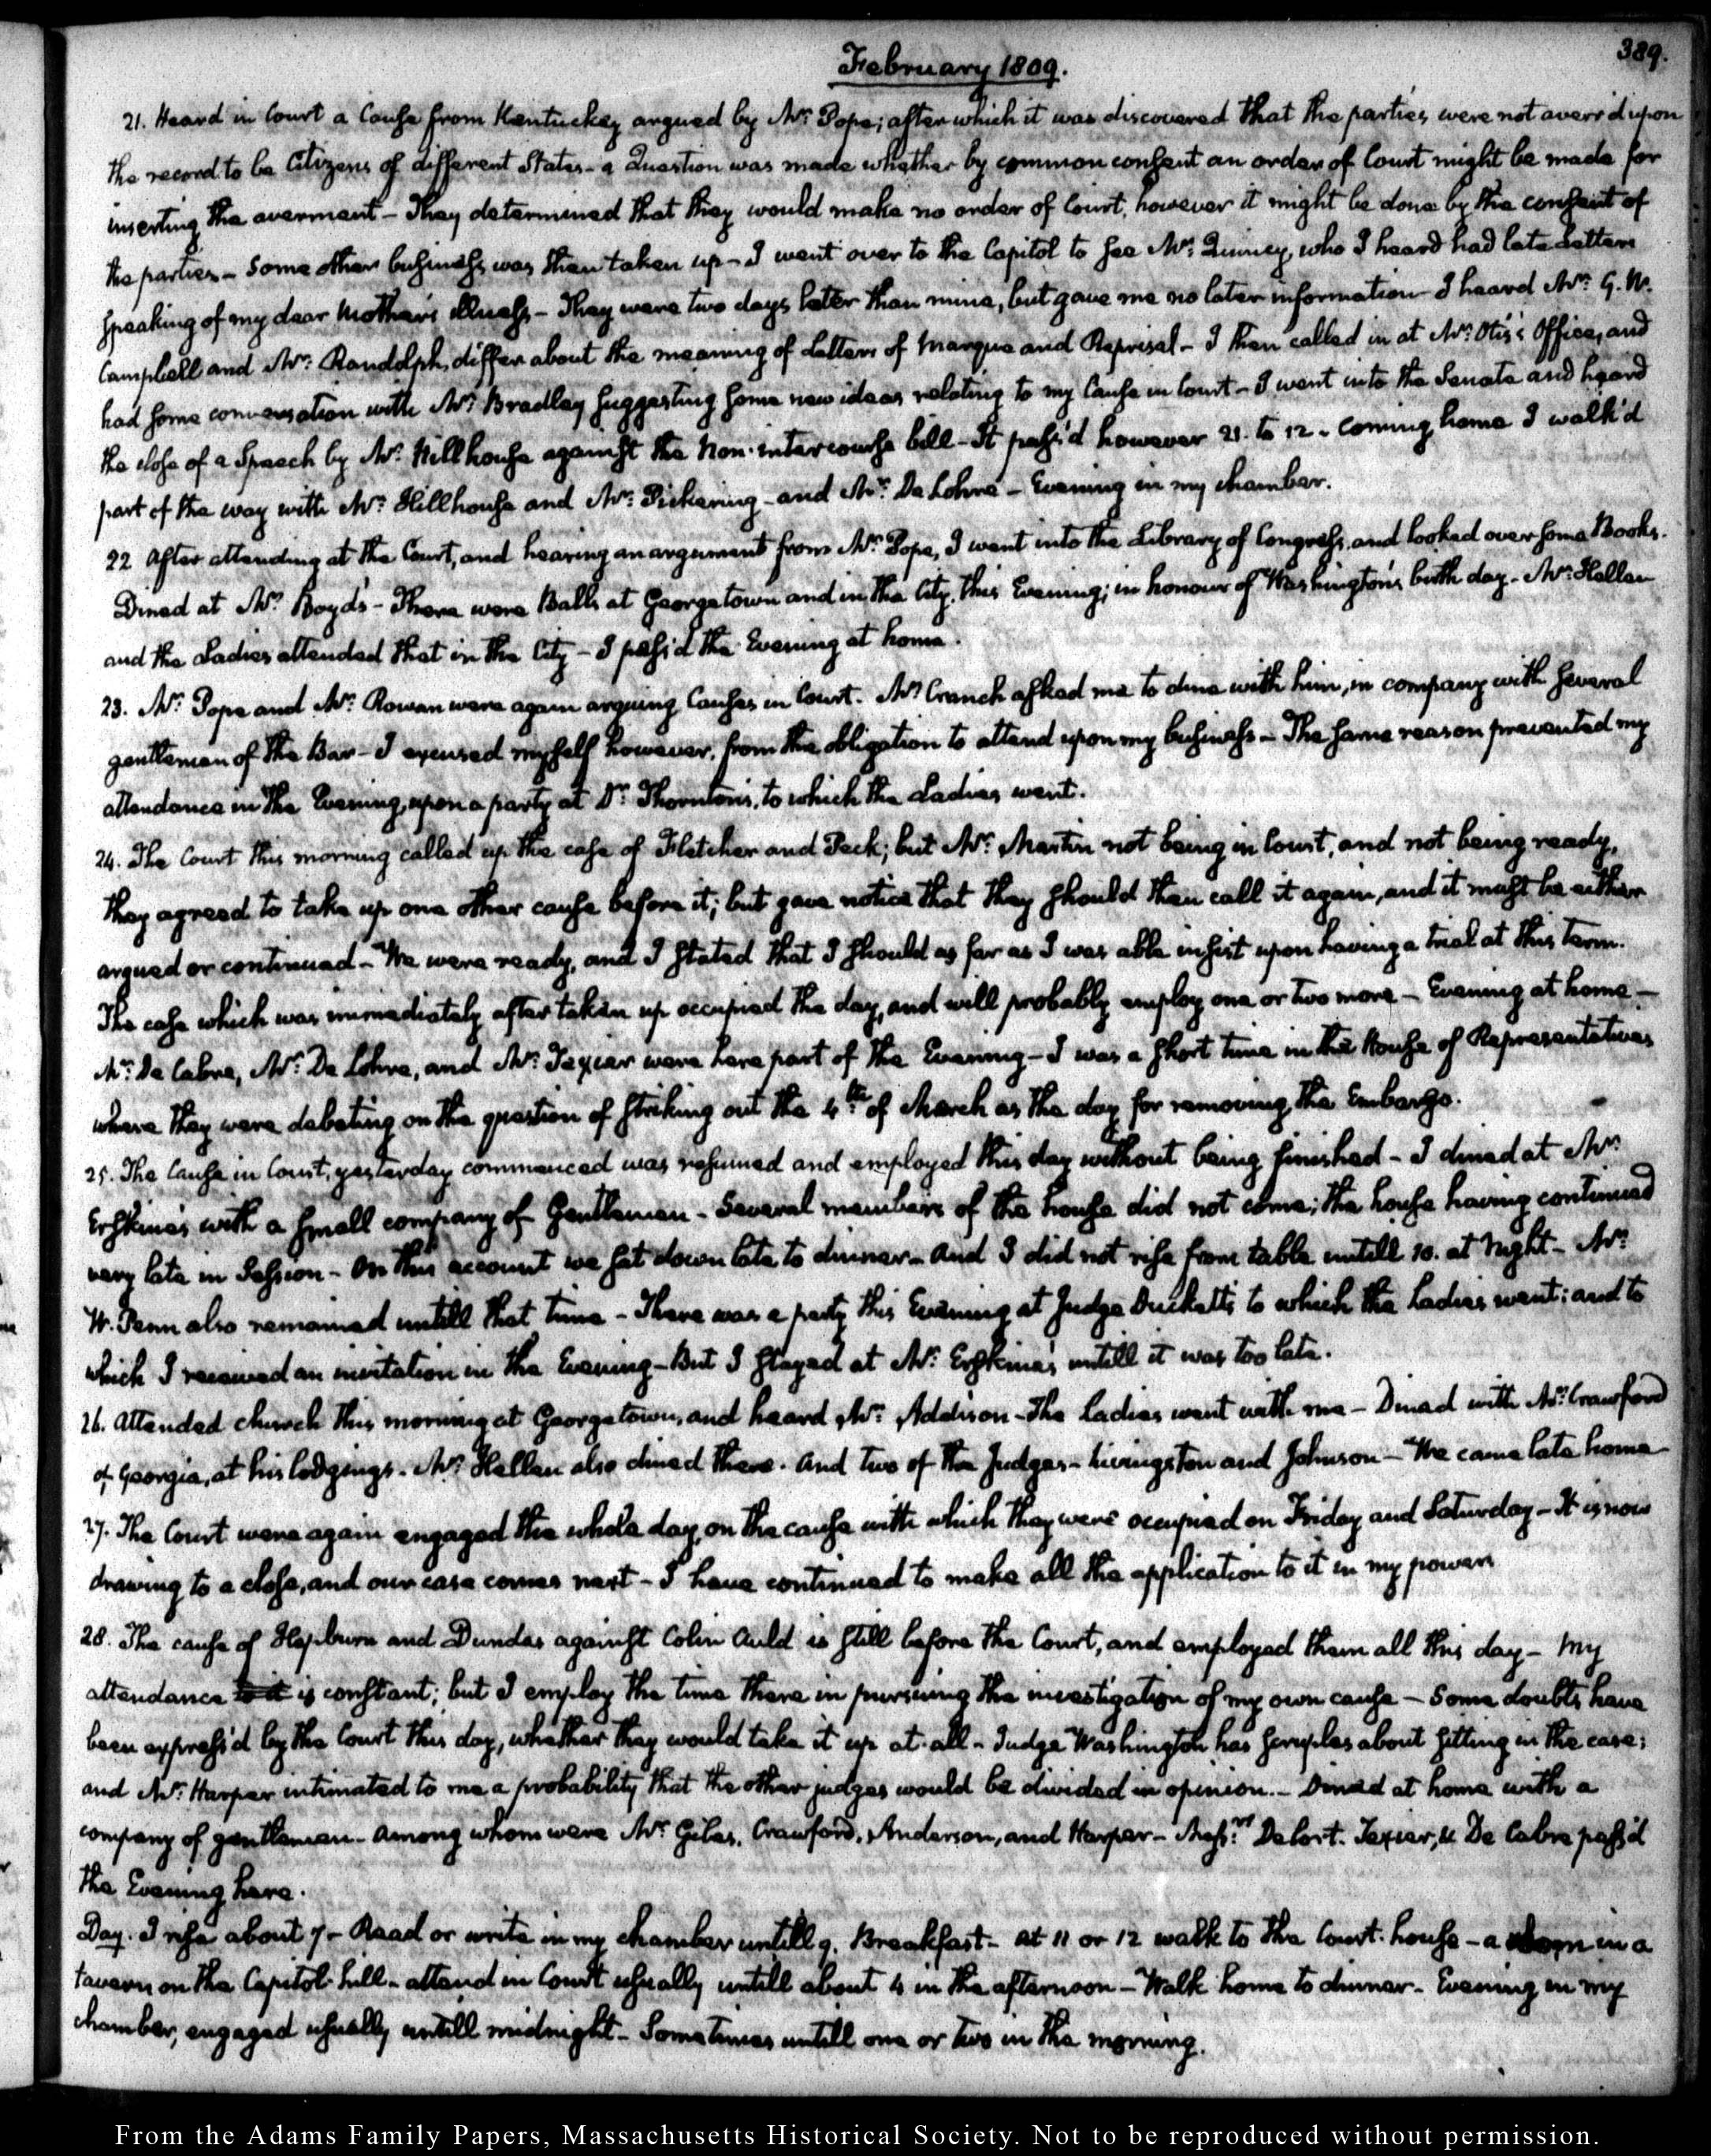 389.
February 1809.
21. Heard in Court a Cause from Kentuckey argued by Mr: Pope; after which it was discovered that the parties were not averr'd upon
the record to be Citizens of different States - a Question was made whether by common consent an order of Court might be made for
inserting the averment - They determined that they would make no order of Court, however it might be done by the consent of
the parties - Some other business was then taken up - I went over to the Capitol to see Mr: Quincy, who I heard had late Letters
speaking of my dear Mother's illness - They were two days later than mine, but gave me no later information - I heard Mr: G. W.
Campbell and Mr: Randolph, differ about the meaning of Letters of Marque and Reprisal - I then called in at Mr: Otis's Office, and
had some conversation with Mr: Bradley suggesting some new ideas relating to my Cause in Court - I went into the Senate and heard
the close of a Speech by Mr: Hillhouse against the Non-intercourse bill - It pass'd however 21. to 12 - Coming home I walk'd
part of the way with Mr: Hillhouse and Mr: Pickering - and Mr: De Lohra - Evening in my chamber.
22 After attending at the Court, and hearing an argument from Mr: Pope, I went into the Library of Congress, and looked over some Books.
Dined at Mr: Boyd's - There were Balls at Georgetown and in the City, this Evening; in honour of Washington's birth day - Mr: Hellen
and the Ladies attended that in the City - I pass'd the Evening at home.
23. Mr: Pope and Mr: Rowan were again arguing Causes in Court. Mr: Cranch asked me to dine with him, in company with several
gentlemen of the Bar - I excused myself however, from the obligation to attend upon my business - The same reason prevented my
attendance in the Evening, upon a party at Dr: Thornton's, to which the Ladies went.
24. The Court this morning called up the case of Fletcher and Peck; but Mr: Martin not being in Court, and not being ready,
they agreed to take up one other cause before it; but gave notice that they should then call it again, and it must be either
argued or continued - We were ready, and I stated that I should as far as I was able insist upon having a trial at this term.
The case which was immediately after taken up occupied the day, and will probably employ one or two more - Evening at home -
Mr: De Cabre, Mr: De Lohra, and Mr: Texier were here part of the Evening - I was a short time in the House of Representatives
where they were debating on the question of striking out the 4th: of March as the day for removing the Embargo.
25. The Cause in Court, yesterday commenced was resumed and employed this day without being finished - I dined at Mr:
Erskine's with a small company of Gentlemen - Several members of the house did not come; the house having continued
very late in Session - On this account we sat down late to dinner - And I did not rise from table untill 10. at Night - Mr:
W. Penn also remained untill that time - There was a party this Evening at Judge Duckett's to which the Ladies went: and to
which I received an invitation in the Evening - But I stayed at Mr: Erskine's untill it was too late.
26. Attended church this morning at Georgetown, and heard Mr: Addison - The Ladies went with me - Dined with Mr: Crawford
of Georgia, at his lodgings. Mr: Hellen also dined there. And two of the Judges - Livingston and Johnson - We came late home
27. The Court were again engaged the whole day, on the cause with which they were occupied on Friday and Saturday - It is now
drawing to a close, and our case comes next - I have continued to make all the application to it in my power.
28. The cause of Hepburn and Dundas against Colin Auld is still before the Court, and employed them all this day - My
attendance to it is constant; but I employ the time there in pursuing the investigation of my own cause - Some doubts have
been express'd by the Court this day, whether they would take it up at all - Judge Washington has scruples about sitting in the case;
and Mr: Harper intimated to me a probability that the other judges would be divided in opinion. - Dined at home with a
company of gentlemen - Among whom were Mr: Giles, Crawford, Anderson, and Harper - Messrs: Defort. Texier, & De Cabre pass'd
the Evening here.
Day. I rise about 7 - Read or write in my chamber untill 9. Breakfast - at 11 or 12 walk to the Court-house - a room in a
tavern on the Capitol-hill - attend in Court usually untill about 4 in the afternoon - Walk home to dinner - Evening in my
chamber, engaged usually untill midnight - Sometimes untill one or two in the morning.
From the Adams Family Papers, Massachusetts Historical Society. Not to be reproduced without permission.